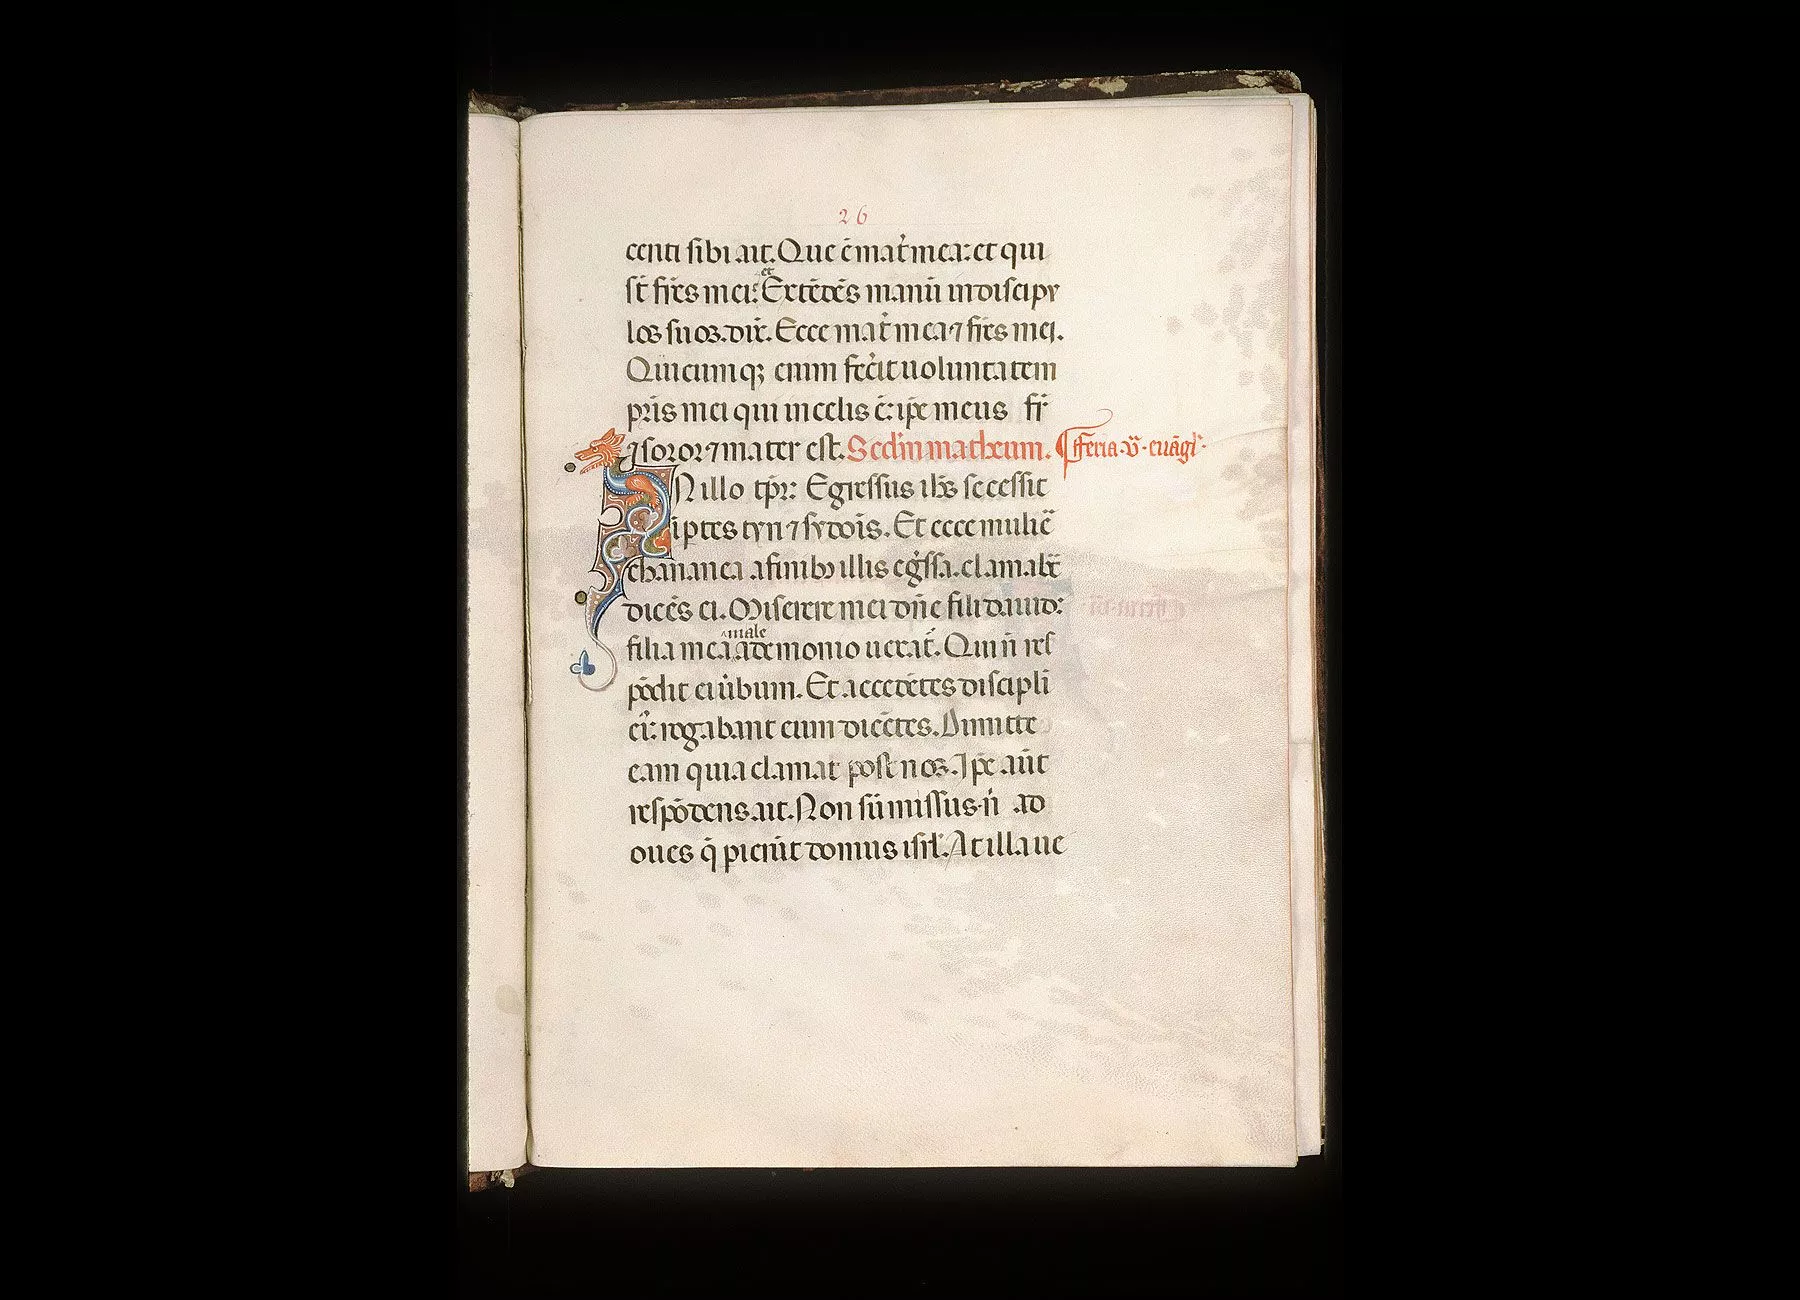 26
centi sibi ait. Que ē mat̉ mea: et qui
st̄ fr̄es mei: et Extēdēs manū in discipu
los suos. dix̄. Ecce mat̉ mea ⁊ fr̄es mei.
Quicumqꝫ enim fec̉it uoluntatem
pr̄is mei qui in celis ē: ip̄e meus fr̄
⁊ soror ⁊ mater est. Sed'm matheum. ¶ fferia. v̄. euāgl̉.
N illo tp̄r: Egressus ih̄s secessit
ī ptes tyri ⁊ sydōis. Et ecce mulie᷑
chananea a finibꝰ illis eg̉ssa. clamab̄t
dicēs ei. Miserere mei dn̄e fili dauid:
filia mea male a demonio uexat᷑. Qui n̄ res
pōdit ei ūbum. Et accedētes discipli
ei᷑: rogabant eum dicētes. Dimitte
eam quia clamat post nos. Ip̄e aūt
respōdens. ait. Non sū missus. n̄ ad
oues q̄ pierūt domus isrl̄. At illa ue